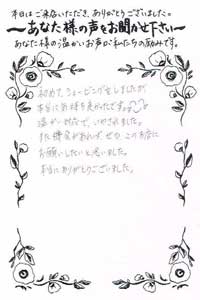 本日はご来店いただき、ありがとうございました。
〜あなた様の声をお聞かせ下さい〜
あなた様の温かいお声が私たちの励みです。
初めて、シェービングをしましたが
本当に気持ち良かったです。
温かい対応で、いやされました。
また機会があれば、ぜひ このお店に
お願いしたいと思いました。
本当にありがとうございました。